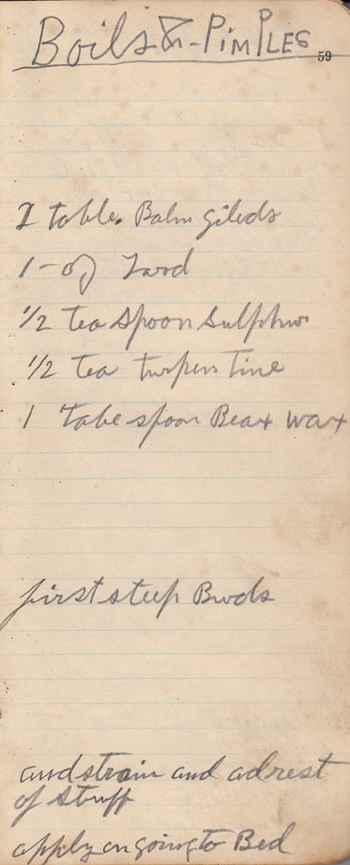 Boils & - PimPLES
59
2 table. Balm gileds
1 - of Lard
1/2 tea spoon Sulphur
1/2 tea turpen Tine
1 Tabe spoon Beax wax
first steep Buds
and strain and ad rest
of stuff
apply on going to Bed